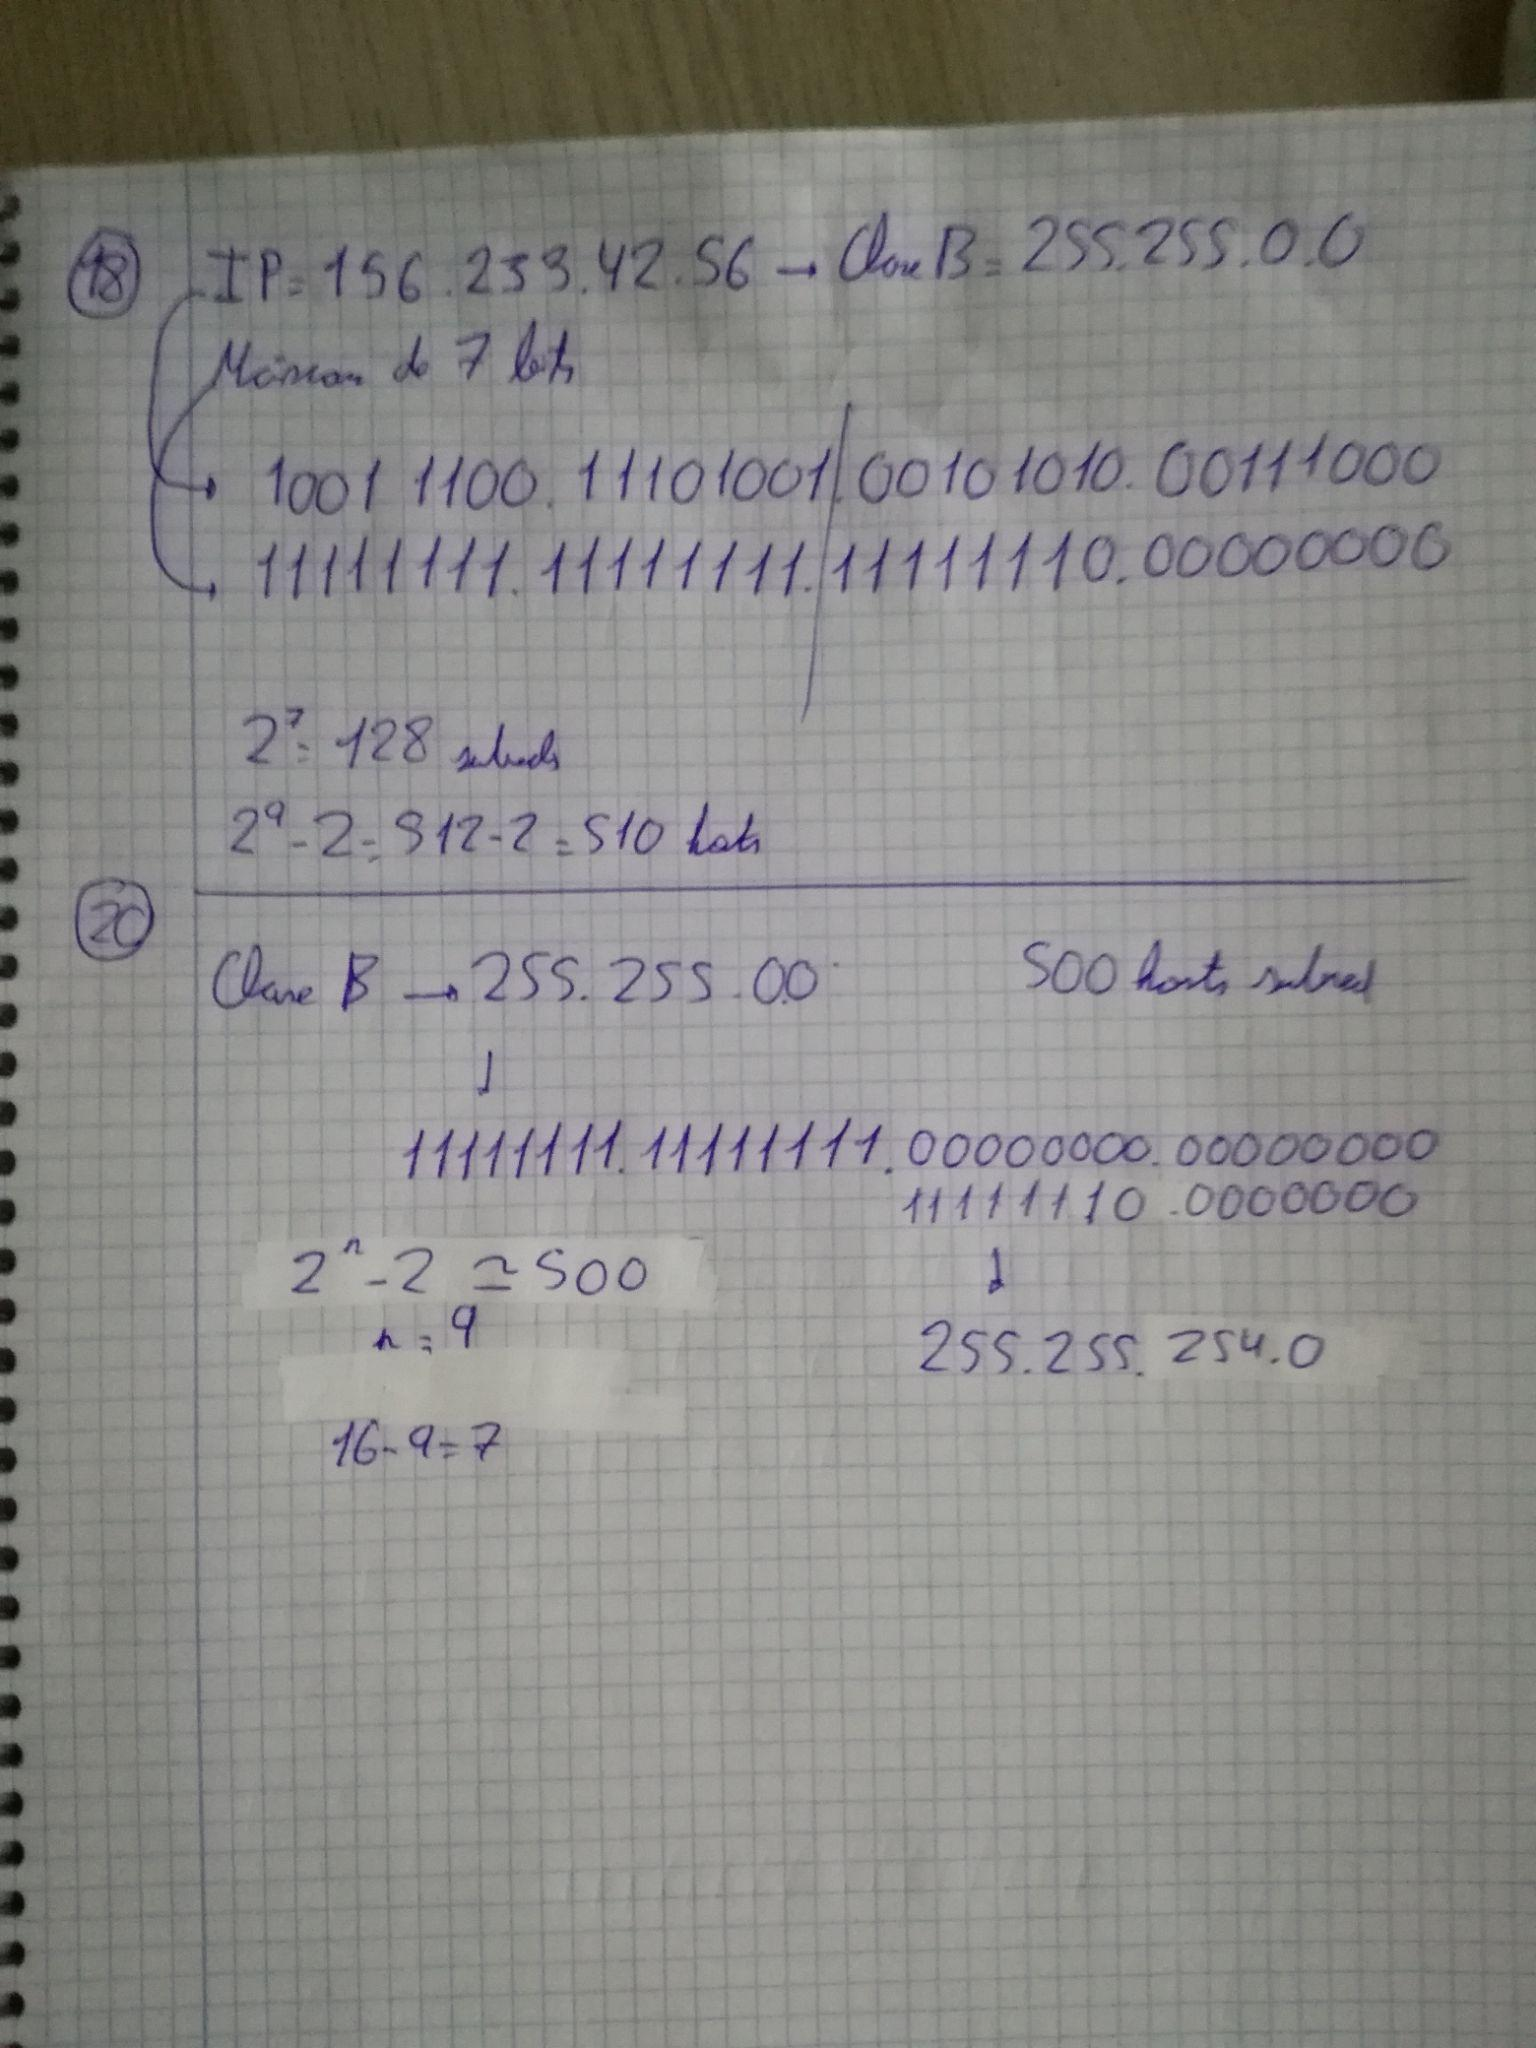 18 IP = 156.233.42.56 → Clase B = 255.255.0.0
Máscara de 7 bits
1001 1100.11101001.00101010.00111000
11111111.11111111.11111110.00000000
2⁷ = 128 subreds
2⁹ - 2 = 512 - 2 = 510 hosts
20
Clase B → 255.255.0.0 500 hosts subred
↓
11111111.11111111.00000000.00000000
11111110.0000000
2ⁿ - 2 ≃ 500 ↓
n = 9 255.255.254.0
16 - 9 = 7